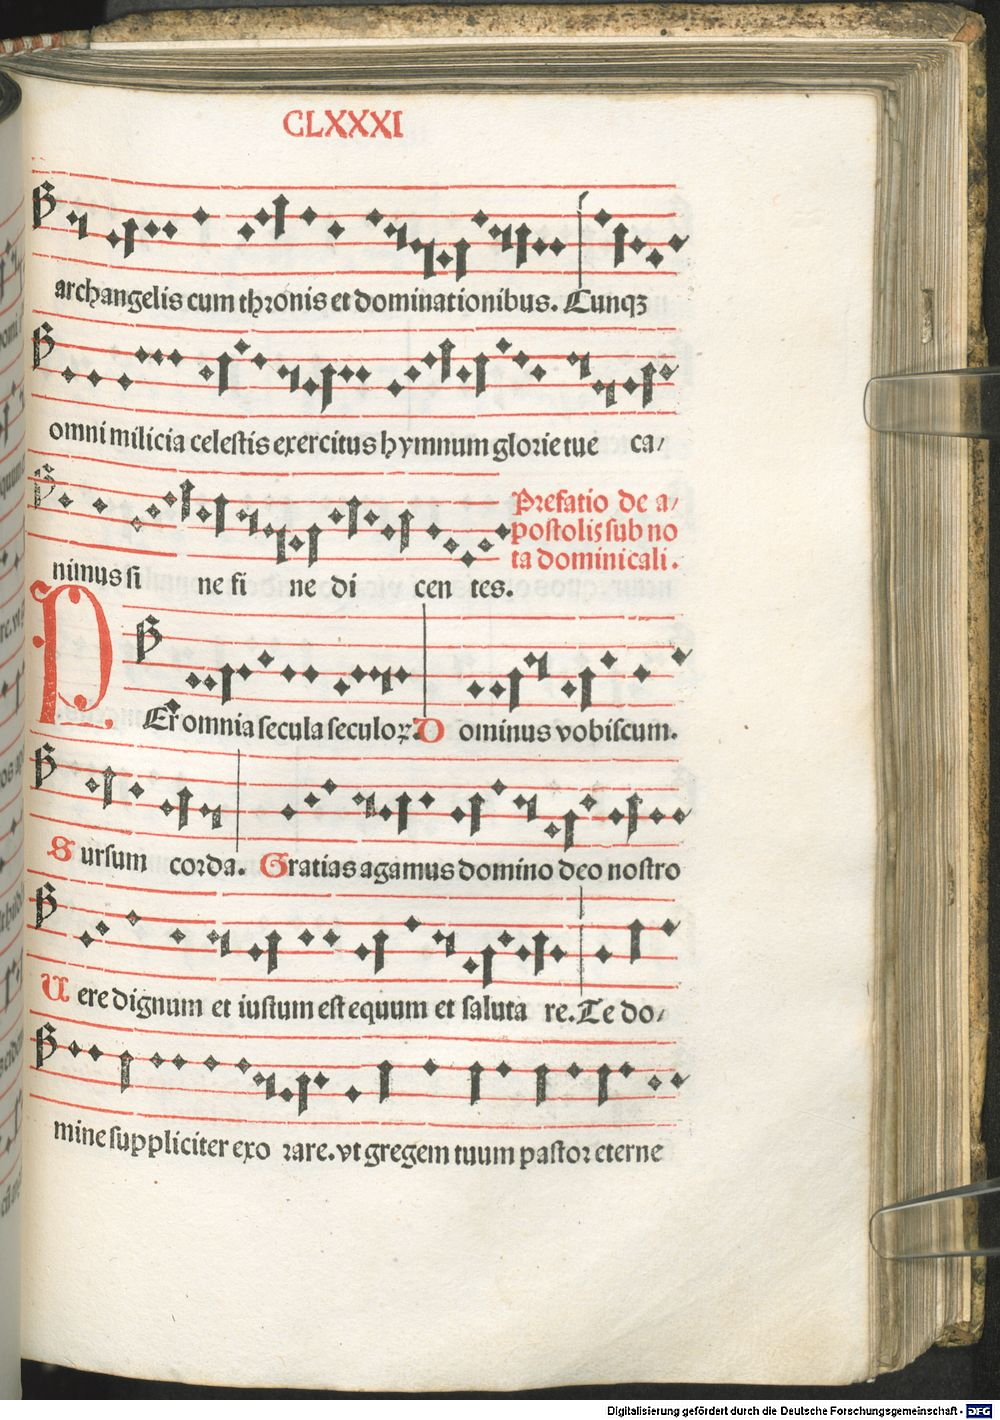 CLXXXI
archangelis cum thronis et dominationibus. Cunqꝫ
omni milicia celestis exercitus hymnum glorie tue ca/
nimus si ne fi ne di cen tes.
Prefatio de a/
postolis sub no
ta dominicali.
PEr omnia secula seculoꝝ. Dominus vobiscum.
Sursum corda. Gratias agamus domino deo nostro
Uere dignum et iustum est equum et saluta re. Te do/
mine suppliciter exo rare. vt gregem tuum pastor eterne
Digitalisierung gefördert durch die Deutsche Forschungsgemeinschaft - DFG